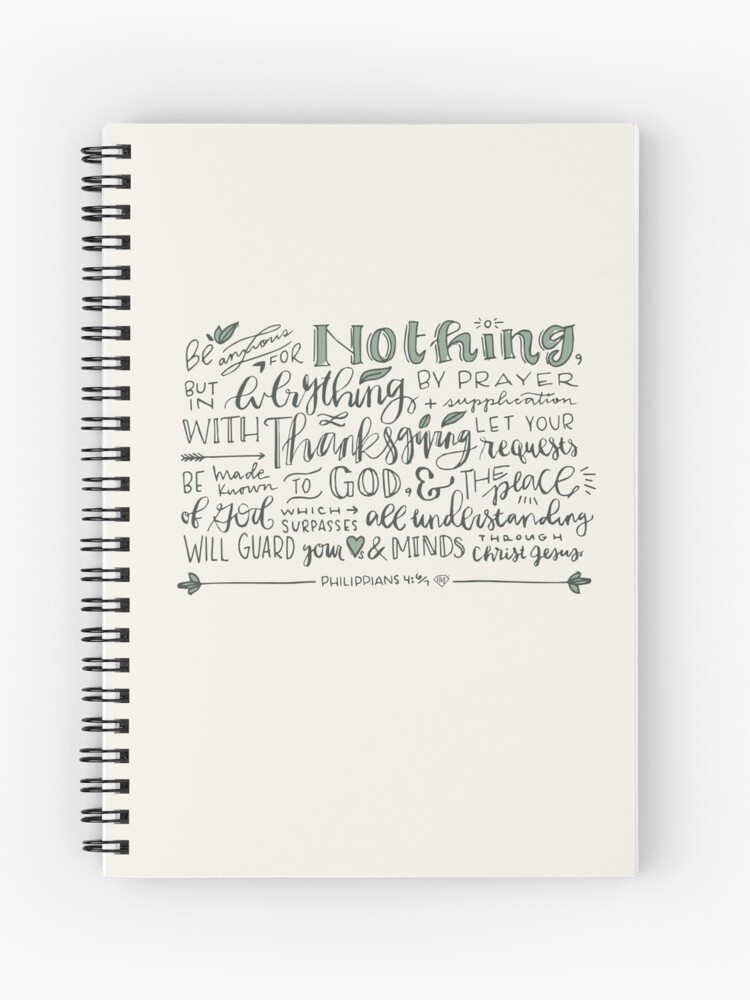 Be anxious FOR Nothing,
BUT IN everything BY PRAYER + supplication
WITH Thanksgiving LET YOUR requests
BE made known TO GOD, & THE peace
of God WHICH SURPASSES all understanding
WILL GUARD your ♥s & MINDS THROUGH Christ Jesus.
PHILIPPIANS 4:6/7